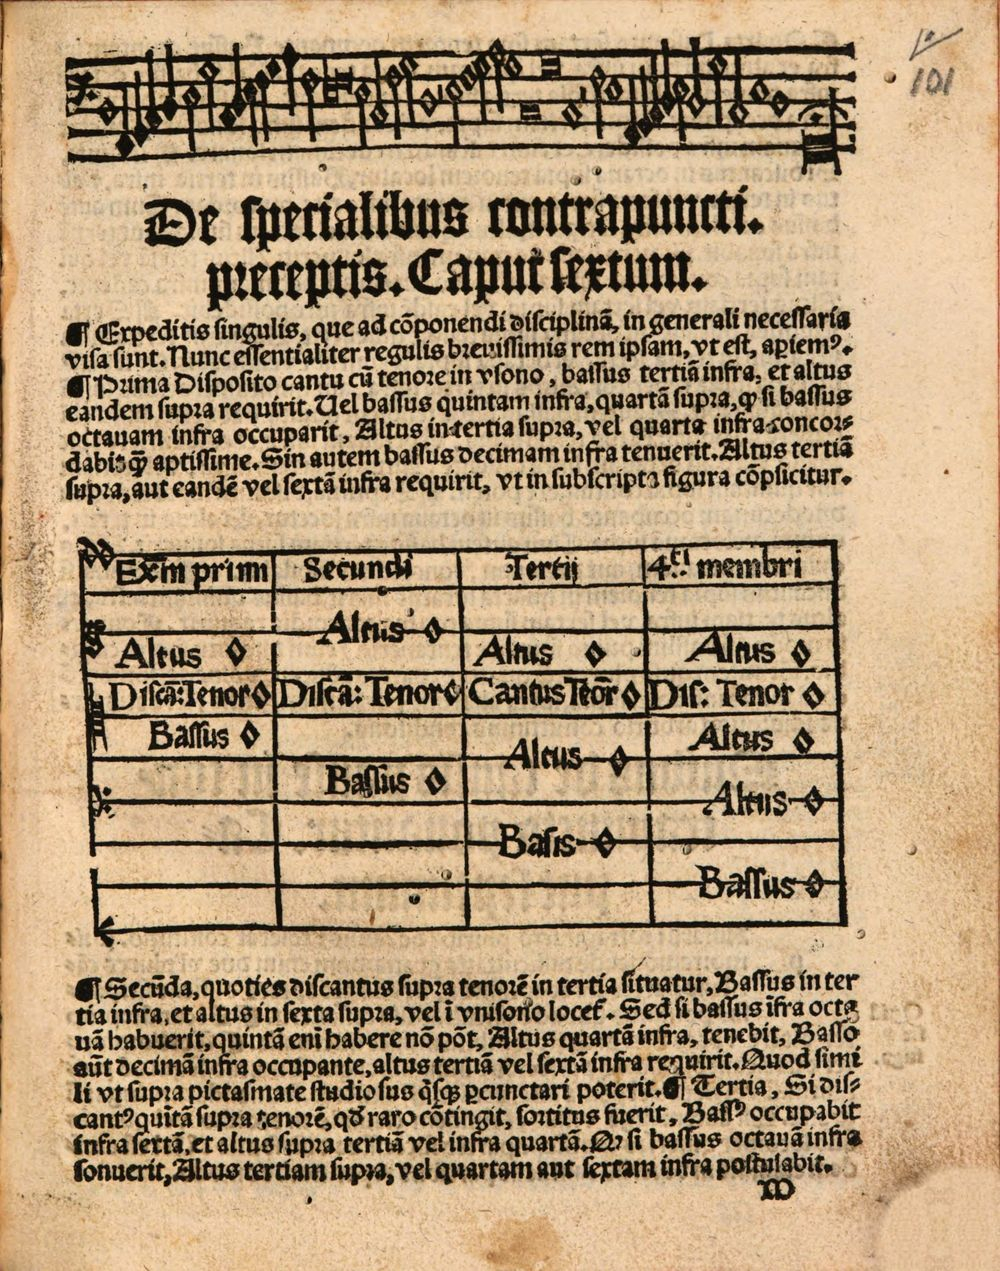 101
De specialibus contrapuncti.
preceptis. Caput sextum.
¶ Expeditis singulis, que ad cōponendi disciplinā, in generali necessaria
visa sunt. Nunc essentialiter regulis breuissimis rem ipsam, vt est, aꝑiemꝰ.
¶ Prima Disposito cantu cū tenore in vsono, bassus tertiā infra, et altus
eandem supra requirit. Uel bassus quintam infra, quartā supra, ꝙ si bassus
octauam infra occuparit, Altus in tertia supra, vel quarta infra concor⸗
dabit ꝙ̄ aptissime. Sin autem bassus decimam infra tenuerit. Altus tertiā
supra, aut eandē vel sextā infra requirit, vt in subscripta figura cōpsicitur.
Exm̄ primi Secundi Tertij 4ti membri
Altus
Altus Altus Altus
Discā: Tenor Discā: Tenor Cantus Teōr Dis: Tenor
Bassus Altus
Altus
Bassus Altus
Basis
Bassus
¶ Secūda, quoties discantus supra tenorē in tertia situatur, Bassus in ter
tia infra, et altus in sexta supra, vel ī vnisono locet᷑. Sed si bassus īfra octa
uā habuerit, quintā eni habere nō pōt, Altus quartā infra, tenebit, Basso
aūt decimā infra occupante, altus tertiā vel sextā infra requirit. Quod simi
li vt supra pictasmate studiosus q̄sqꝫ ꝑcunctari poterit. ¶ Tertia, Si dis⸗
cantꝰ quītā supra tenorē, qd̄ raro cōtingit, sortitus fuerit, Bassꝰ occupabit
infra sextā, et altus supra tertiā vel infra quartā. Qꝫ si bassus octauā infra
sonuerit, Altus tertiam supra, vel quartam aut sextam infra postulabit.
M